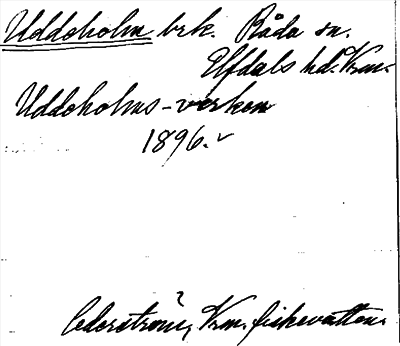 Uddeholm brk. Råda sn.
Elfdals hd. Vrm.
Uddeholms-verken
1896.
Cederström, Vrm. fiskevatten.